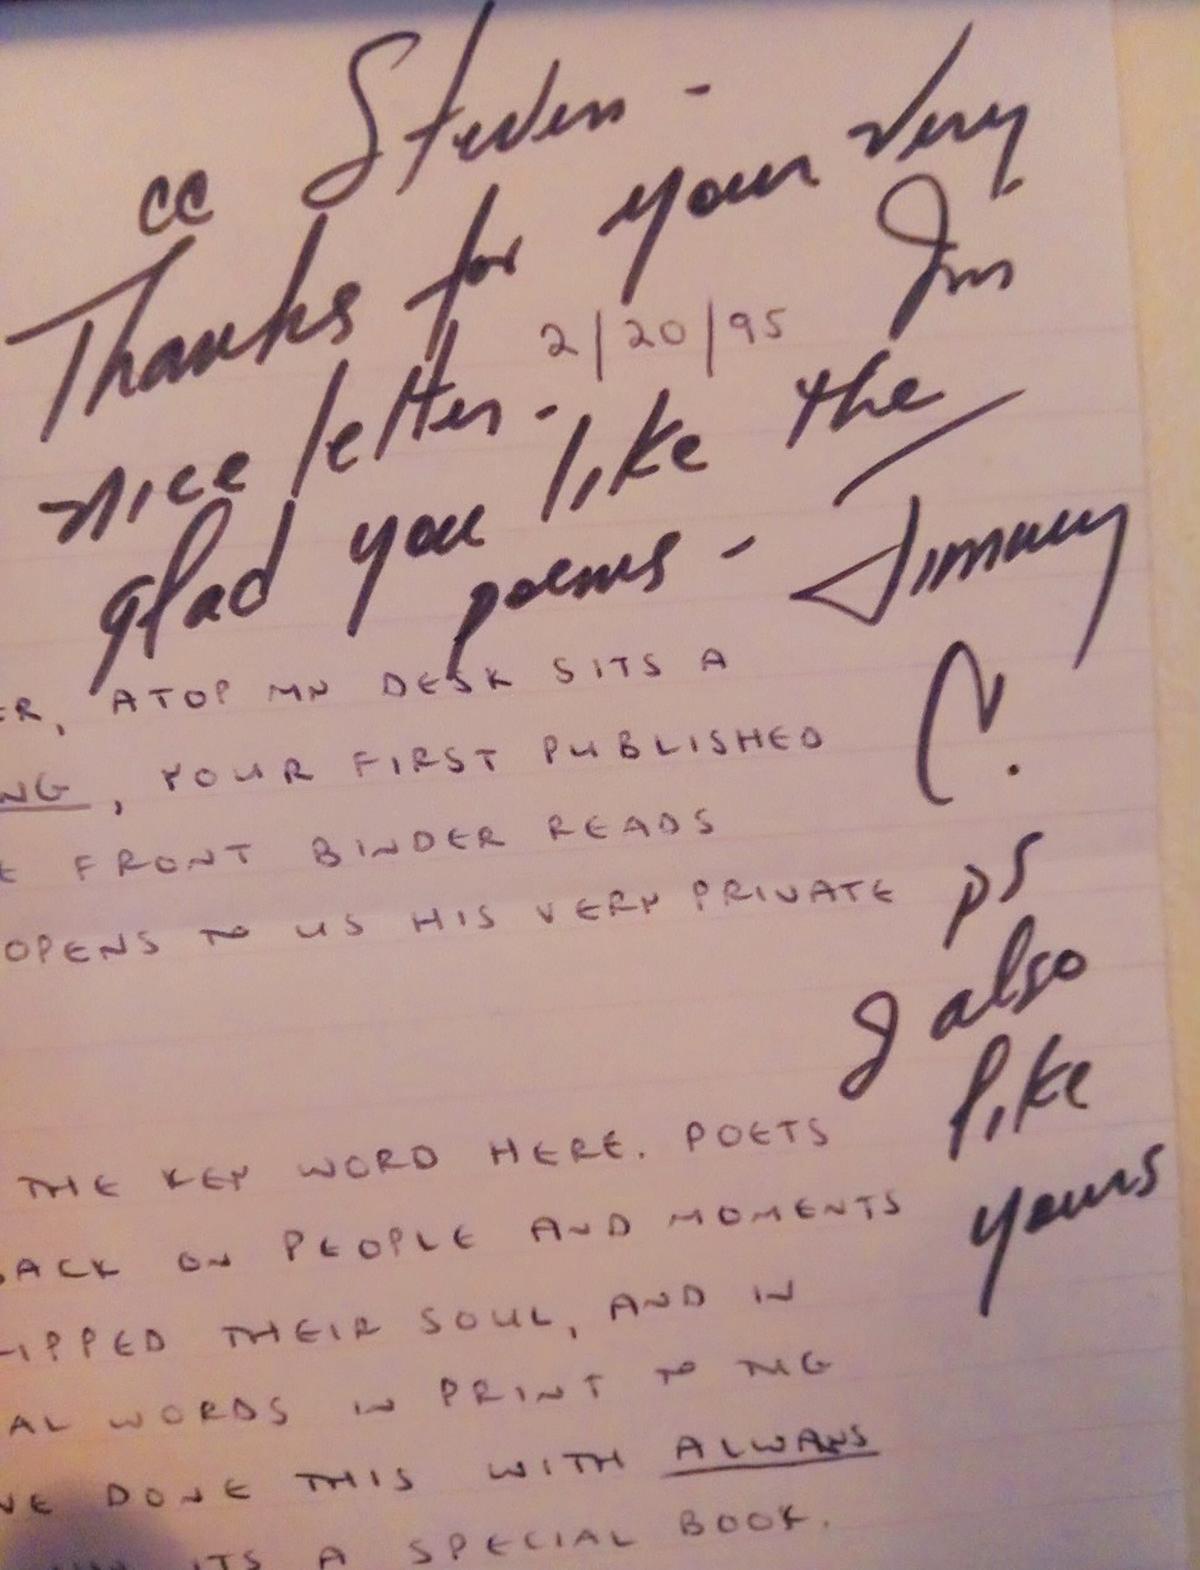 cc Steven -
Thanks for your very
nice letter -
Jim
2/20/95
glad you like the
poems - Jimmy
C.
ER, ATOP MY DESK SITS A
NG, YOUR FIRST PUBLISHED
E FRONT BINDER READS
OPENS TO US HIS VERY PRIVATE
ps
I also
like
yours
THE KEY WORD HERE. POETS
BACK ON PEOPLE AND MOMENTS
IPPED THEIR SOUL, AND IN
AL WORDS IN PRINT TO
VE DONE THIS WITH ALWAYS
ITS A SPECIAL BOOK.